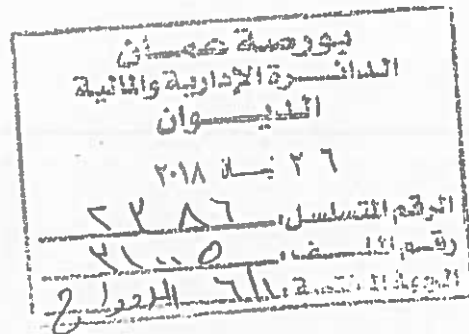 بورصة عمان
الدائرة الإدارية والمالية
الديوان
٢٦ نيسان ٢٠١٨
الرقم المتسلسل: ٢٢٨٦
رقم الملف: ٣١٠٠٥
الجهة المختصة: